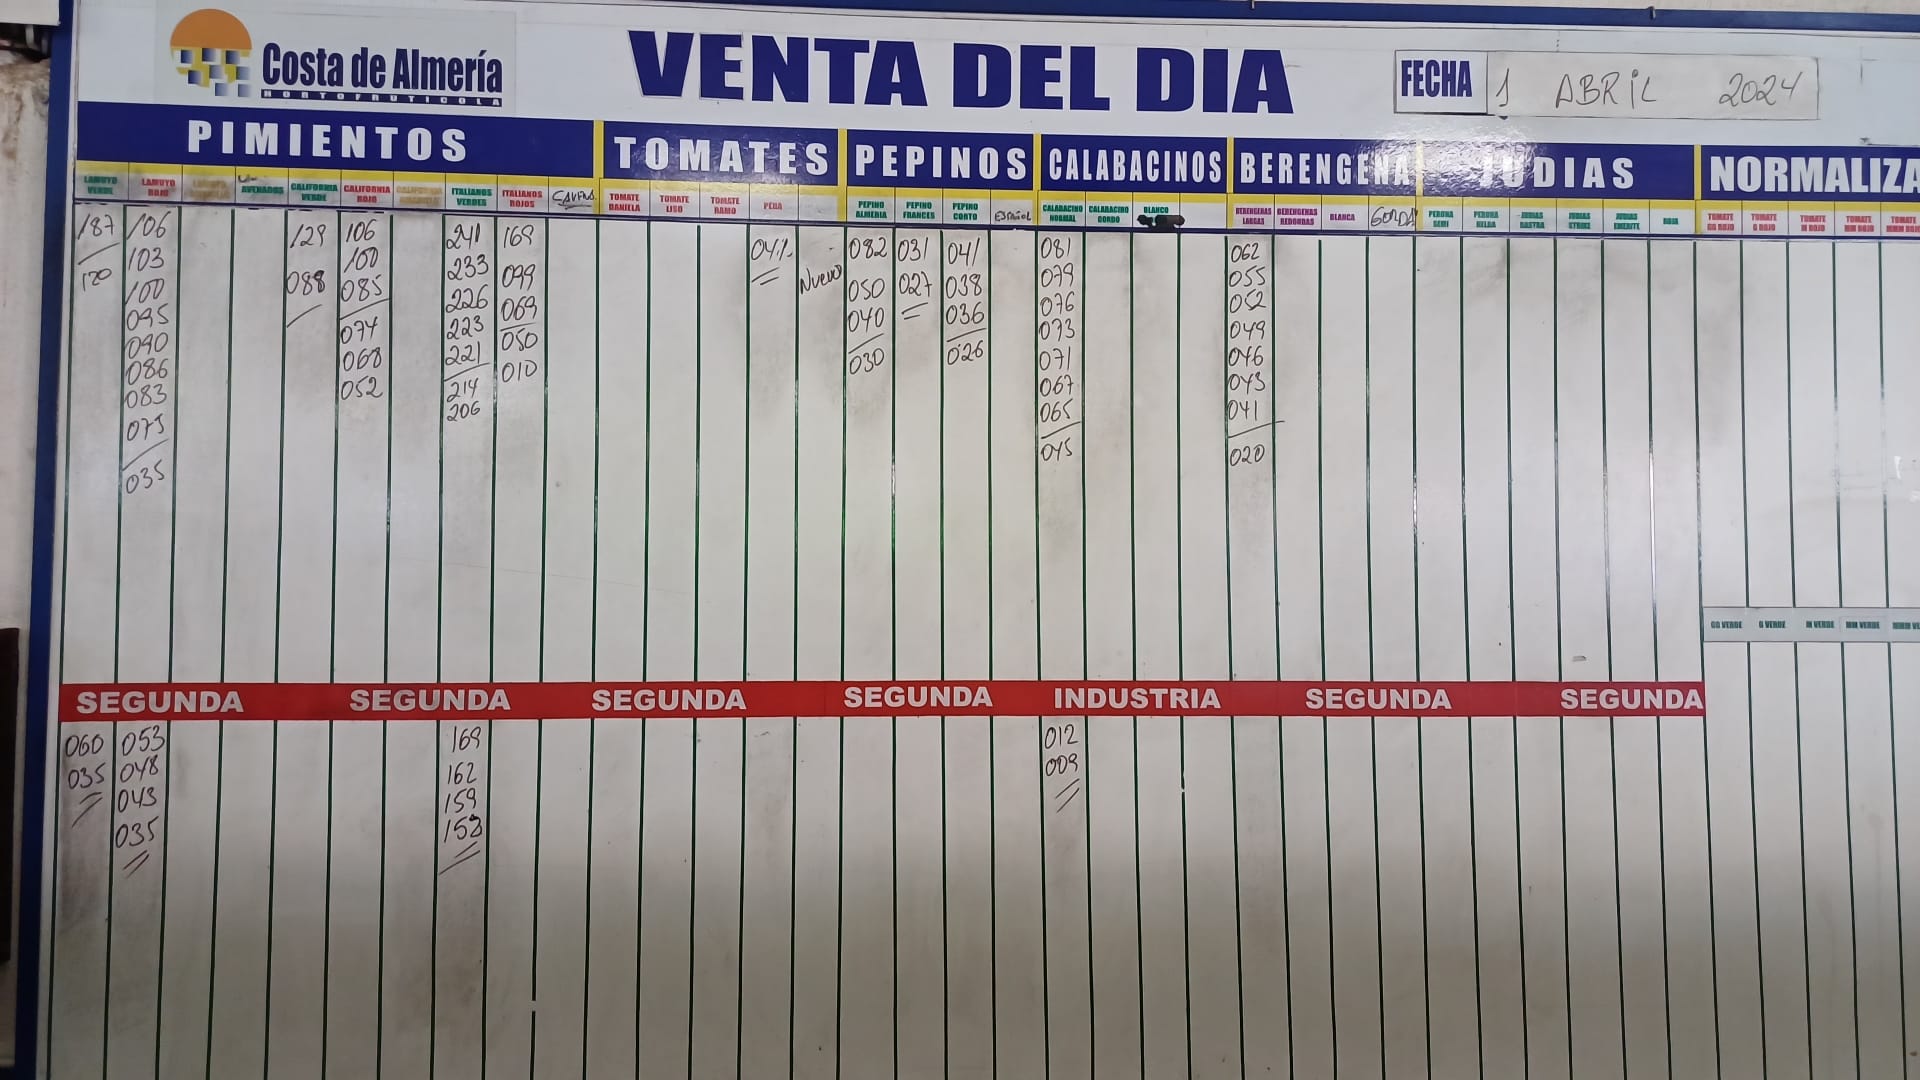 Costa de Almería
HORTOFRUTICOLA
VENTA DEL DIA
FECHA 1 ABRIL 2024
PIMIENTOS TOMATES PEPINOS CALABACINOS BERENGENA JUDIAS NORMALIZA
LAMUYO VERDE
LAMUYO ROJO
ASURADOS
CALIFORNIA VERDE
CALIFORNIA ROJO
ITALIANOS VERDES
ITALIANOS ROJOS
TOMATE DANIELA
TOMATE LISO
TOMATE RAMO
PERA
PEPINO ALMERIA
PEPINO FRANCES
PEPINO CORTO
ESPAÑOL
CALABACINO NORMAL
CALABACINO GORDO
BLANCO
BERENGENAS LARGAS
BERENGENAS REDONDAS
BLANCA
GORDA
PERONA SEMI
PERONA
JUDIAS RASTRA
JUDIAS STRIKE
JUDIAS EMERITE
ROJA
TOMATE GG ROJO
TOMATE G ROJO
TOMATE M ROJO
TOMATE MM ROJO
TOMATE MMM ROJO
187
120
106
103
100
095
090
086
083
075
035
129
088
106
100
085
074
068
052
241
233
226
223
221
214
206
169
099
069
050
010
Nuevo
082
050
040
030
031
027
041
038
036
026
081
079
076
073
071
067
065
045
062
055
052
049
046
043
041
020
GG VERDE G VERDE M VERDE MM VERDE MMM VE
SEGUNDA SEGUNDA SEGUNDA SEGUNDA INDUSTRIA SEGUNDA SEGUNDA
060
035
053
048
043
035
169
162
159
153
012
009